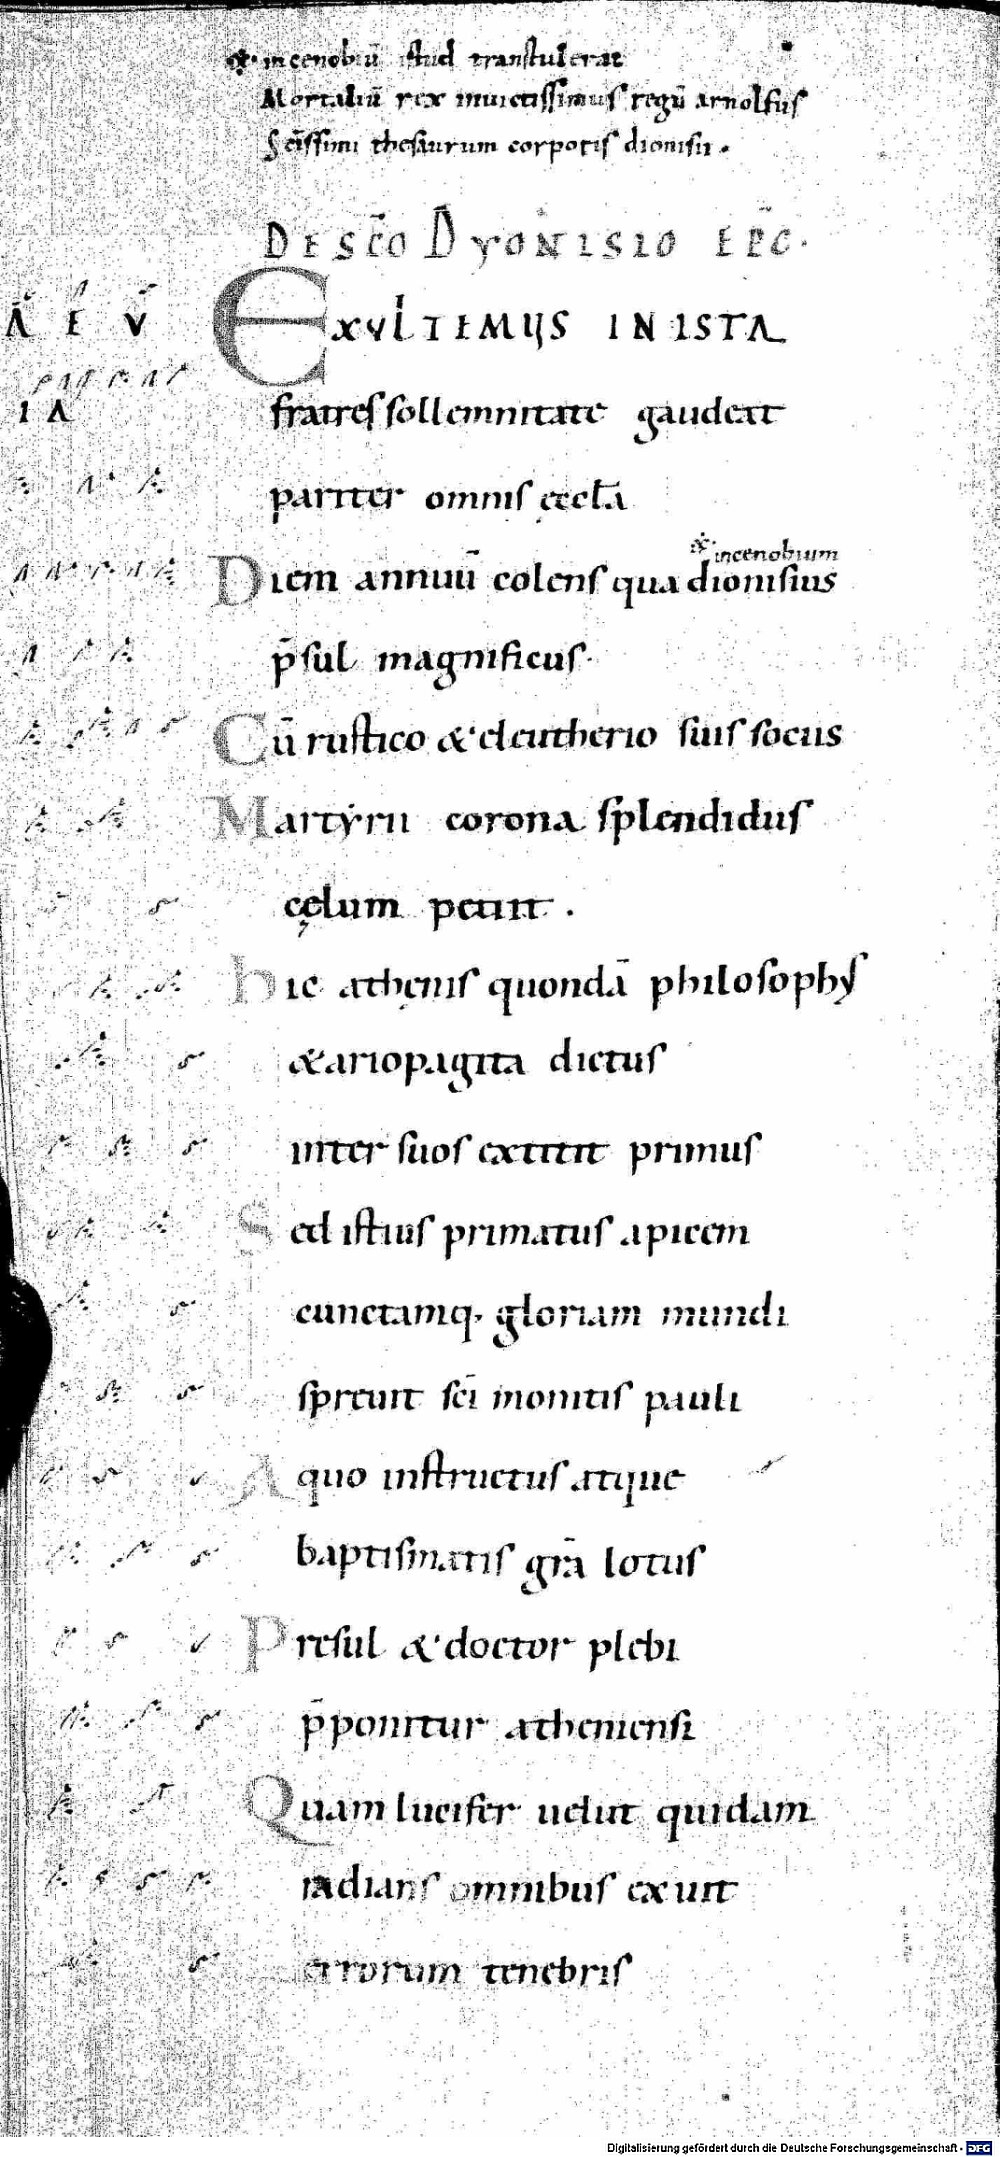 incenobiū istud transtulerat
Mortaliū rex inuictissimus regū arnolfus
Sc̄issimi thesaurum corporis dionisii.
DE SC̄O DYONISIO EPC.
A E V EXULTEMUS IN ISTA
IA fratres sollemnitate gaudeat
pariter omnis ęccła
incenobium
Diem annuū colens qua dionisius
p̄sul magnificus.
Cū rustico & eleutherio suis sociis
Martyrū corona splendidus
cęlum petiit.
hic athęnis quondā philosophus
& ariopagita dictus
inter suos extitit primus
Sed istius primatus apicem
cunctamq. gloriam mundi
spreuit sc̄i monitis pauli
A quo instructus atque
baptismatis gr̄a lotus
Presul & doctor plebi
p̄ponitur atheniensi
Quam lucifer uelut quidam
radians omnibus exuit
errorum tenebris
Digitalisierung gefördert durch die Deutsche Forschungsgemeinschaft - DFG